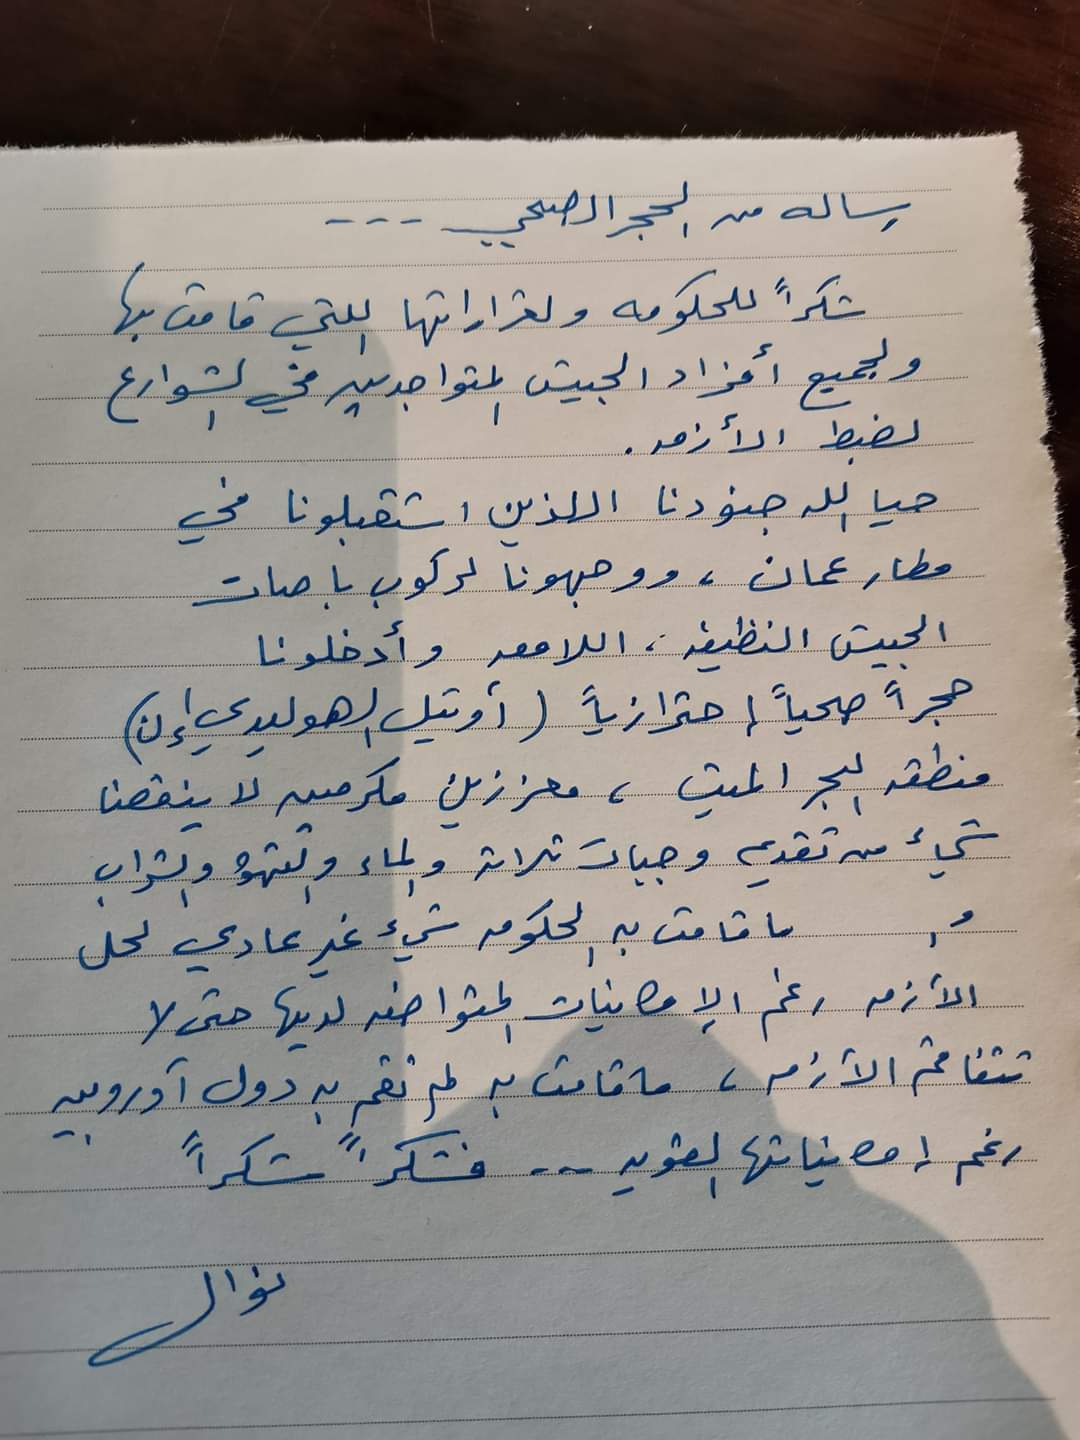 رساله من الحجر الصحي ---
شكراً للحكومه ولقراراتها اللتي قامت بها
ولجميع أفراد الجيش المتواجدين في الشوارع
لضبط الأزمه .
حيا الله جنودنا اللذين استقبلونا في
مطار عمان ، ووجهونا لركوب باصات
الجيش النظيفه ، اللامعه وأدخلونا
حجراً صحياً إحترازياً ( أوتيل الهوليدي إن )
منطقه البحر الميت ، معززين مكرمين لا ينقصنا
شيء من تقديم وجبات ثلاثة والماء والقهوة والشراب
ما قامت به الحكومه شيء غير عادي لحل
الأزمه رغم الإمكانيات المتواضعه لديها حتى لا
تتفاقم الأزمه ، ما قامت به لم تقم به دول أوروبيه
رغم إمكانياتها القويه --- فشكراً شكراً
نوال